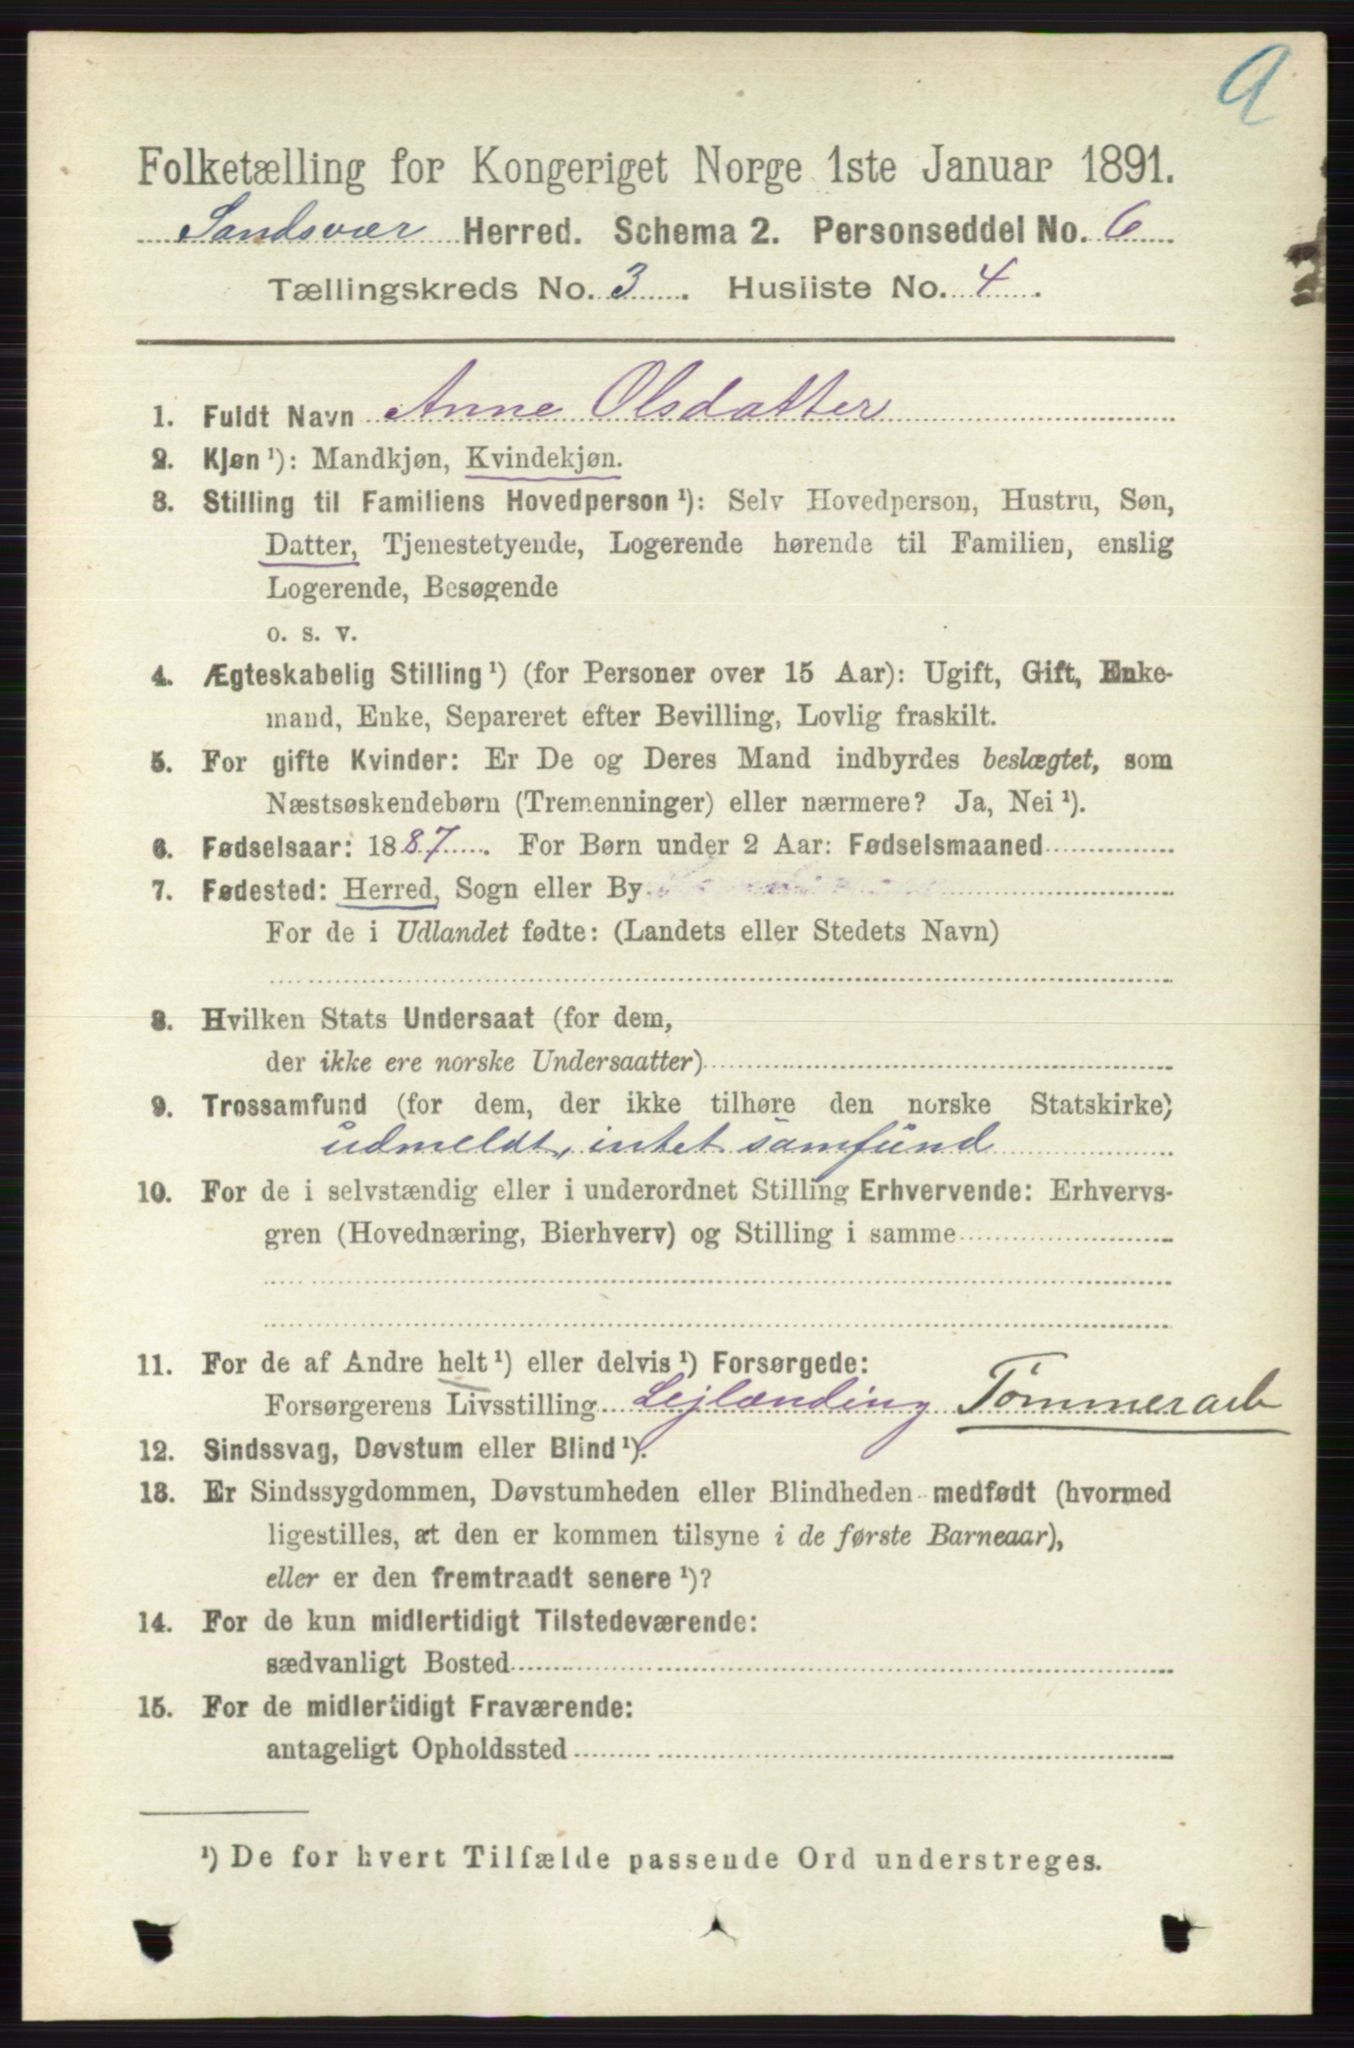 9
Folketælling for Kongeriget Norge 1ste Januar 1891.
Sandsvær Herred. Schema 2. Personseddel No. 6
Tællingskreds No. 3. Husliste No. 4.
1. Fuldt Navn Anne Olsdatter
2. Kjøn ¹): Mandkjøn, Kvindekjøn.
3. Stilling til Familiens Hovedperson ¹): Selv Hovedperson, Hustru, Søn,
Datter, Tjenestetyende, Logerende hørende til Familien, enslig
Logerende, Besøgende
o. s. v.
4. Ægteskabelig Stilling ¹) (for Personer over 15 Aar): Ugift, Gift, Enke-
mand, Enke, Separeret efter Bevilling, Lovlig fraskilt.
5. For gifte Kvinder: Er De og Deres Mand indbyrdes beslægtet, som
Næstsøskendebørn (Tremenninger) eller nærmere? Ja, Nei ¹).
6. Fødselsaar: 1887. For Børn under 2 Aar: Fødselsmaaned
7. Fødested: Herred, Sogn eller By
For de i Udlandet fødte: (Landets eller Stedets Navn)
8. Hvilken Stats Undersaat (for dem,
der ikke ere norske Undersaatter)
9. Trossamfund (for dem, der ikke tilhøre den norske Statskirke)
udmeldt, intet samfund
10. For de i selvstændig eller i underordnet Stilling Erhvervende: Erhvervs-
gren (Hovednæring, Bierhverv) og Stilling i samme
11. For de af Andre helt ¹) eller delvis ¹) Forsørgede:
Forsørgerens Livsstilling Lejlænding Tømmerarb
12. Sindssvag, Døvstum eller Blind ¹).
13. Er Sindssygdommen, Døvstumheden eller Blindheden medfødt (hvormed
ligestilles, at den er kommen tilsyne i de første Barneaar),
eller er den fremtraadt senere ¹)?
14. For de kun midlertidigt Tilstedeværende:
sædvanligt Bosted
15. For de midlertidigt Fraværende:
antageligt Opholdssted
¹) De for hvert Tilfælde passende Ord understreges.